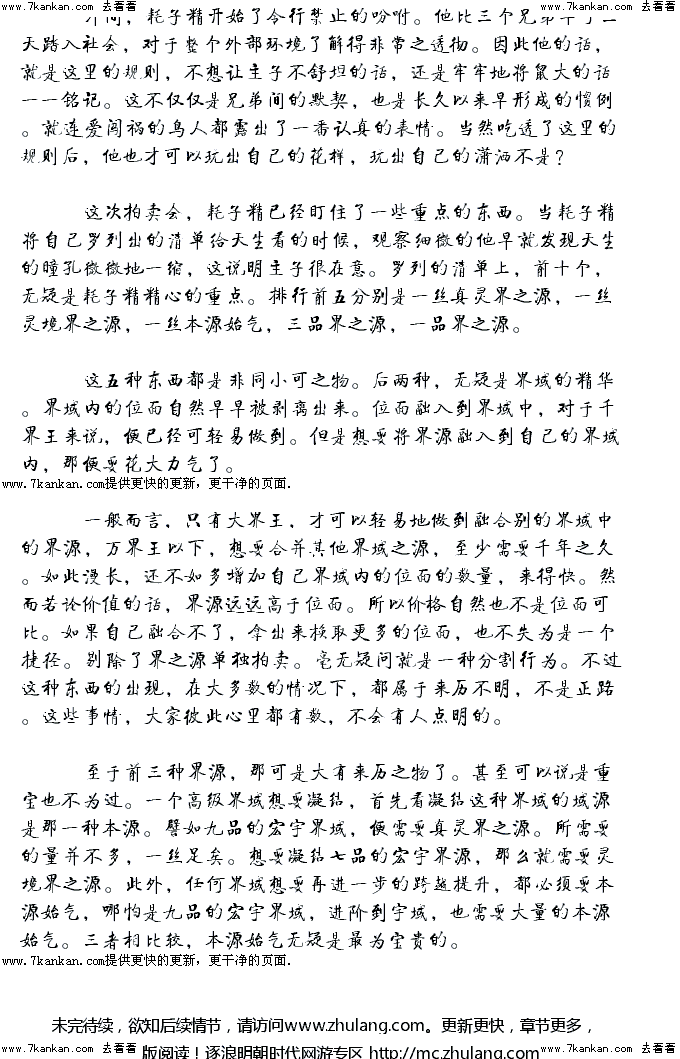 www.7kankan.com 去看看
www.7kankan.com 去看看
间，耗子精开始了令行禁止的吩咐。他比三个兄弟早了
天踏入社会，对于整个外部环境了解得非常之透彻。因此他的话，
就是这里的规则，不想让主子不舒坦的话，还是牢牢地将鼠大的话
一一铭记。这不仅仅是兄弟间的默契，也是长久以来早形成的惯例
。就连爱闯祸的鸟人都露出了一番认真的表情。当然吃透了这里的
规则后，他也才可以玩出自己的花样，玩出自己的潇洒不是？
这次拍卖会，耗子精已经盯住了一些重点的东西。当耗子精
将自己罗列出的清单给天生看的时候，观察细微的他早就发现天生
的瞳孔微微地一缩，这说明主子很在意。罗列的清单上，前十个，
无疑是耗子精精心的重点。排行前五分别是一丝真灵界之源，一丝
灵境界之源，一丝本源始气，三品界之源，一品界之源。
这五种东西都是非同小可之物。后两种，无疑是界域的精华
。界域内的位面自然早早被剥离出来。位面融入到界域中，对于千
界王来说，便已经可轻易做到。但是想要将界源融入到自己的界域
内，那便要花大力气了。
www.7kankan.com提供更快的更新，更干净的页面.
一般而言，只有大界王，才可以轻易地做到融合别的界域中
的界源，万界王以下，想要合并其他界域之源，至少需要千年之久
。如此漫长，还不如多增加自己界域内的位面的数量，来得快。然
而若论价值的话，界源远远高于位面。所以价格自然也不是位面可
比。如果自己融合不了，拿出来换取更多的位面，也不失为是一个
捷径。剔除了界之源单独拍卖。毫无疑问就是一种分割行为。不过
这种东西的出现，在大多数的情况下，都属于来历不明，不是正路
。这些事情，大家彼此心里都有数，不会有人点明的。
至于前三种界源，那可是大有来历之物了。甚至可以说是重
宝也不为过。一个高级界域想要凝结，首先看凝结这种界域的域源
是那一种本源。譬如九品的宏宇界域，便需要真灵界之源。所需要
的量并不多，一丝足矣。想要凝结七品的宏宇界源，那么就需要灵
境界之源。此外，任何界域想要再进一步的跨越提升，都必须要本
源始气，哪怕是九品的宏宇界域，进阶到宇域，也需要大量的本源
始气。三者相比较，本源始气无疑是最为宝贵的。
www.7kankan.com提供更快的更新，更干净的页面.
未完待续，欲知后续情节，请访问www.zhulang.com。更新更快，章节更多，
版阅读！逐浪明朝时代网游专区 http://mc.zhulang.com
www.7kankan.com 去看看
www.7kankan.com 去看看